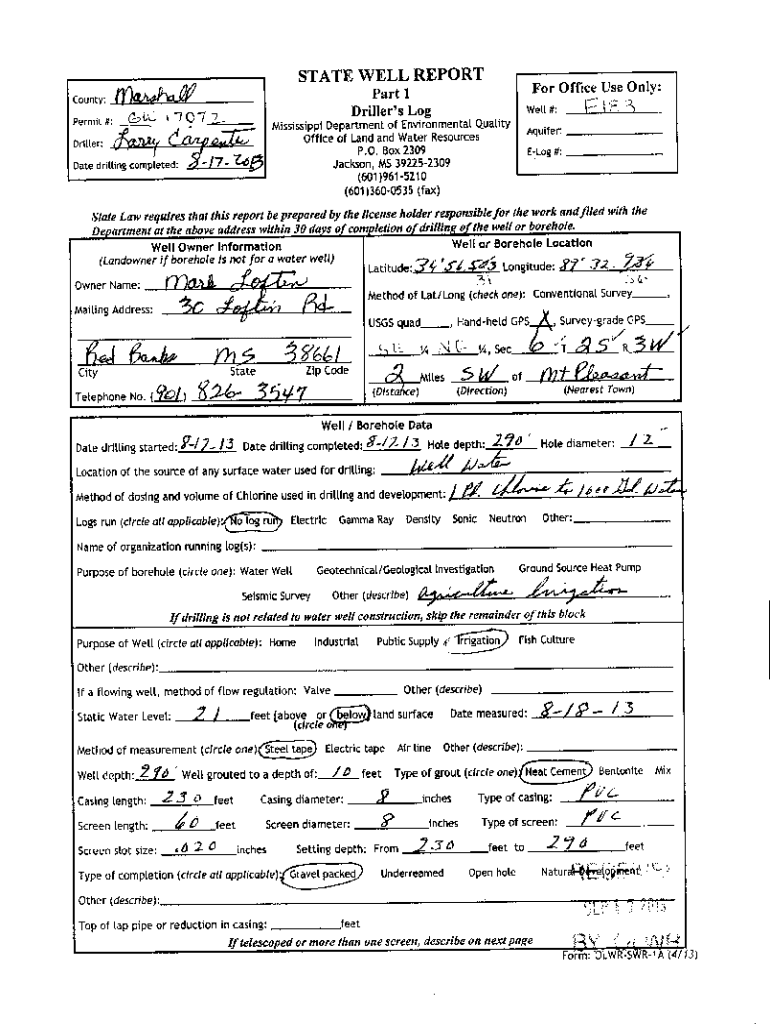 STATE WELL REPORT
Part 1
Driller's Log
Mississippi Department of Environmental Quality
Office of Land and Water Resources
P.O. Box 2309
Jackson, MS 39225-2309
(601)961-5210
(601)360-0535 (fax)
County: Marshall
Permit #: GW 17072
Driller: Larry Carpenter
Date drilling completed: 8-17-2013
For Office Use Only:
Well #:
Aquifer:
E-Log #:
State Law requires that this report be prepared by the license holder responsible for the work and filed with the
Department at the above address within 30 days of completion of drilling of the well or borehole.
Well Owner Information
(Landowner if borehole is not for a water well)
Owner Name: Mark Loftin
Mailing Address: 30 Loftin Rd
Red Banks MS 38661
City State Zip Code
Telephone No. (901) 826-3547
Well or Borehole Location
Latitude: 34° 56. 503 Longitude: 89° 32. 934
Method of Lat/Long (check one): Conventional Survey____,
USGS quad____, Hand-held GPS X, Survey-grade GPS____
SE ¼ NE ¼, Sec 6 T 2S R 3W
2 Miles SW of Mt Pleasant
(Distance) (Direction) (Nearest Town)
Well / Borehole Data
Date drilling started: 8-17-13 Date drilling completed: 8-17-13 Hole depth: 290' Hole diameter: 12"
Location of the source of any surface water used for drilling: Well Water
Method of dosing and volume of Chlorine used in drilling and development: 1 Pt. Chlorine to 1000 Gal. Water
Logs run (circle all applicable): No log run Electric Gamma Ray Density Sonic Neutron Other:
Name of organization running log(s):
Purpose of borehole (circle one): Water Well Geotechnical/Geological Investigation Ground Source Heat Pump
Seismic Survey Other (describe) Agriculture Irrigation
If drilling is not related to water well construction, skip the remainder of this block
Purpose of Well (circle all applicable): Home Industrial Public Supply Irrigation Fish Culture
Other (describe):
If a flowing well, method of flow regulation: Valve Other (describe)
Static Water Level: 21 feet (above or below) land surface Date measured: 8-18-13
(circle one)
Method of measurement (circle one): Steel tape Electric tape Air line Other (describe):
Well depth: 290' Well grouted to a depth of: 10 feet Type of grout (circle one): Neat Cement Bentonite Mix
Casing length: 230 feet Casing diameter: 8 inches Type of casing: PVC
Screen length: 60 feet Screen diameter: 8 inches Type of screen: PVC
Screen slot size: .020 inches Setting depth: From 230 feet to 290 feet
Type of completion (circle all applicable): Gravel packed Underreamed Open hole Natural Development
Other (describe):
Top of lap pipe or reduction in casing: feet
If telescoped or more than one screen, describe on next page
Form: OLWR-SWR-1A (4/13)